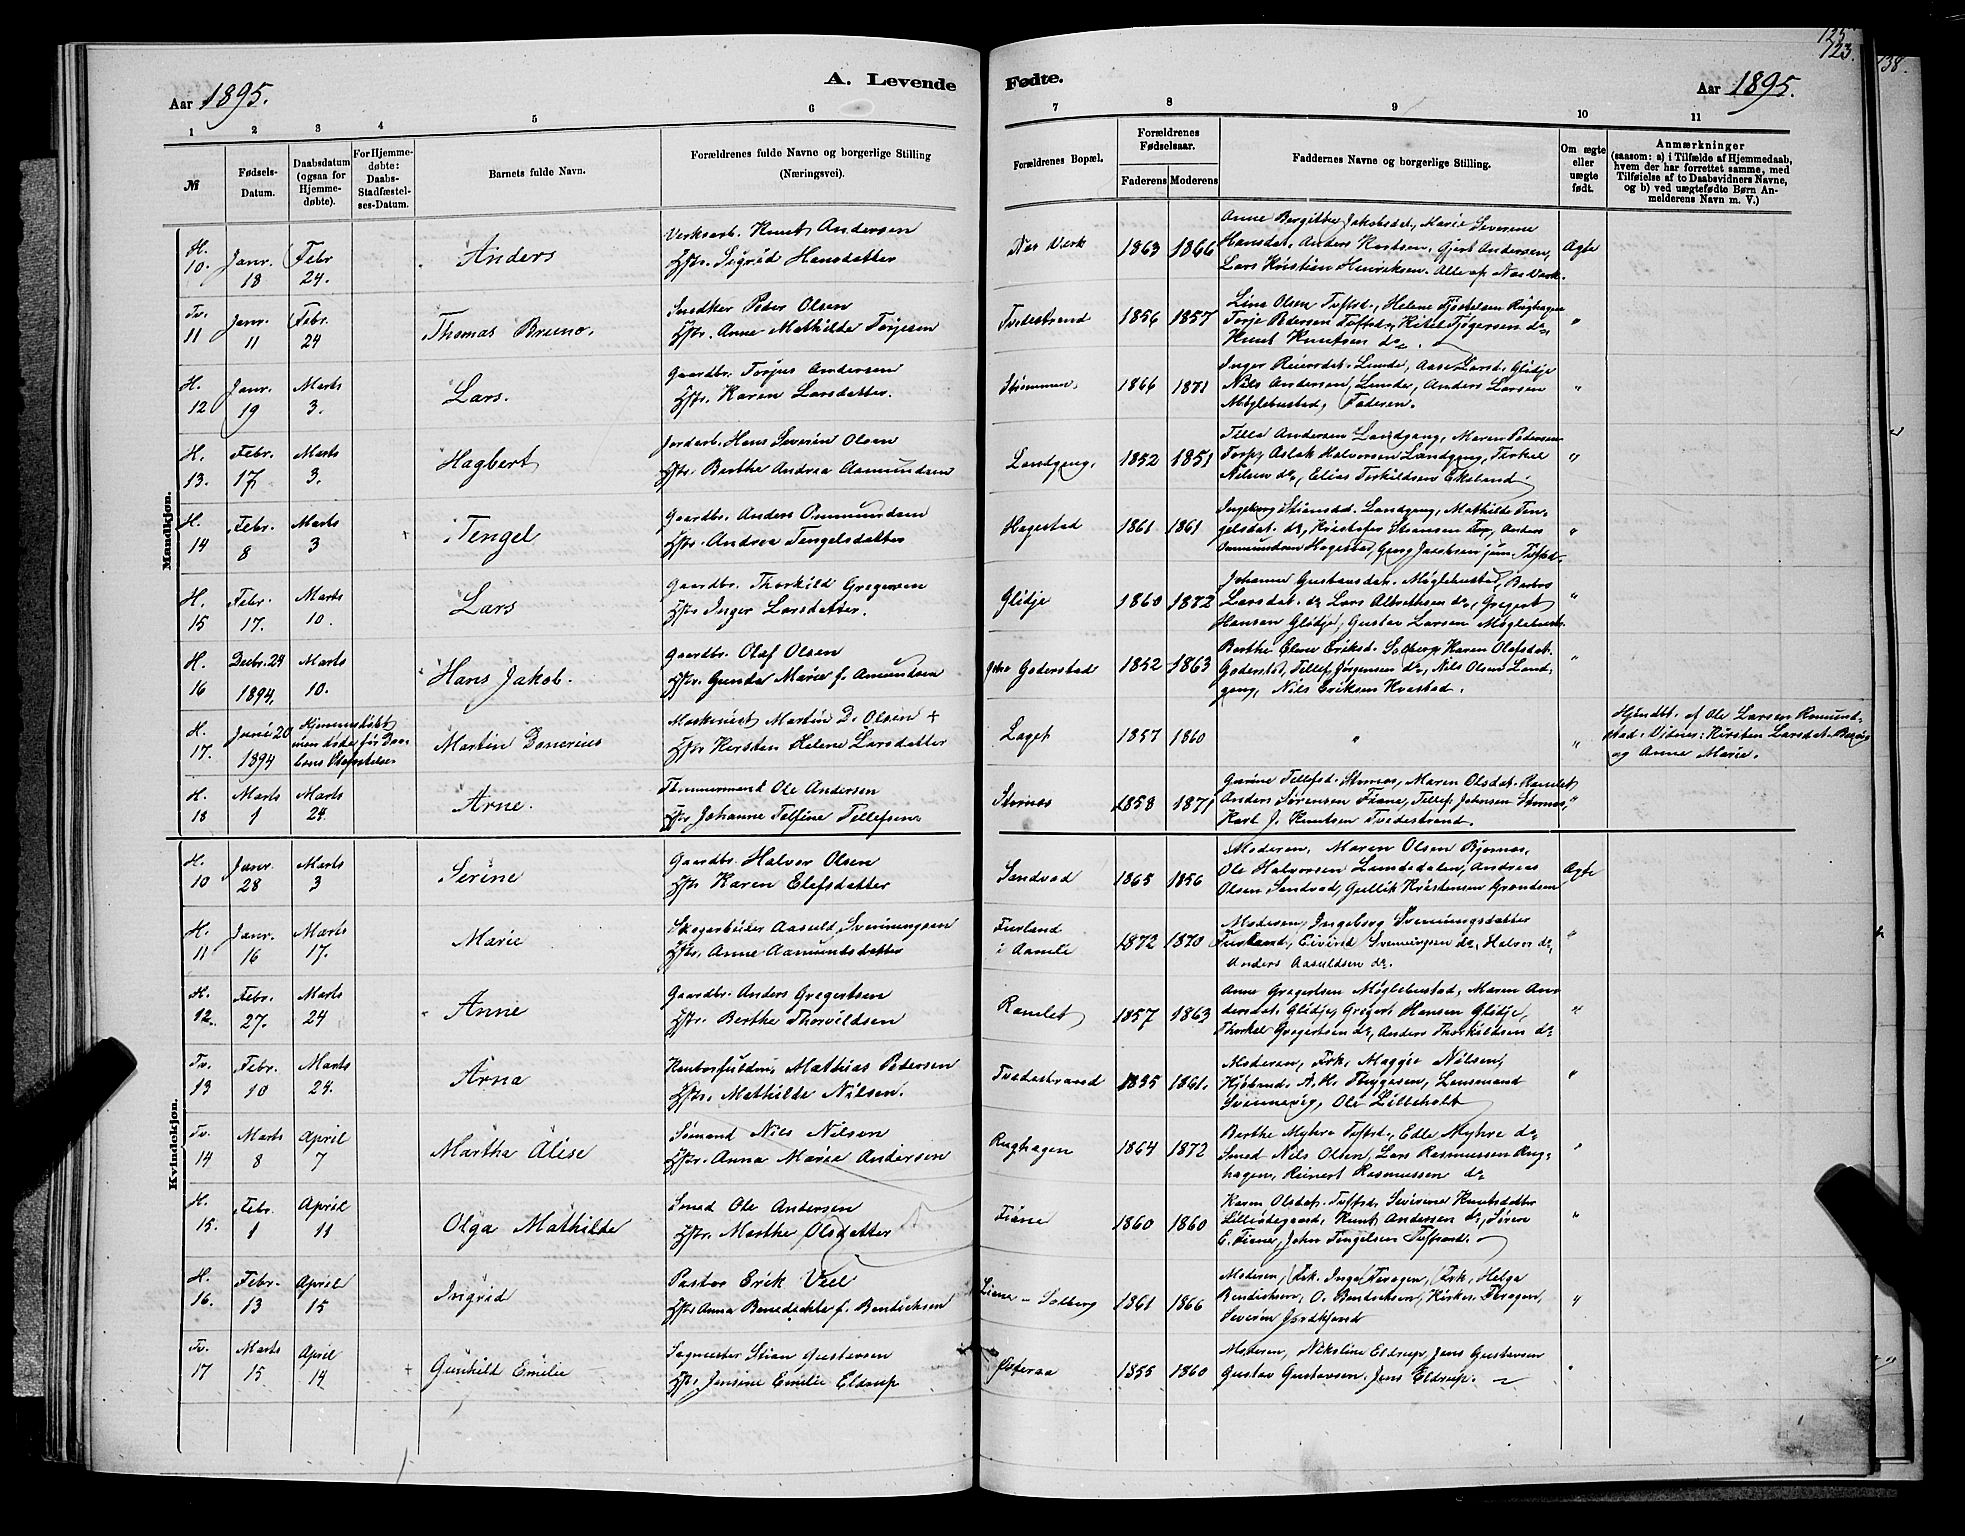 125
123.
138.
A. Levende Fødte.
Aar 1895.
Aar 1895.
1 2 3 4 5 6 7 8 9 10 11
№
Fødsels-Datum.
Daabsdatum (ogsaa for Hjemme-døbte).
For Hjemme-døbte: Daabs-Stadfæstel-ses-Datum.
Barnets fulde Navn.
Forældrenes fulde Navne og borgerlige Stilling (Næringsvei).
Forældrenes Bopæl.
Forældrenes Fødselsaar.
Faderens Moderens
Faddernes Navne og borgerlige Stilling.
Om ægte eller uægte født.
Anmærkninger
(saasom: a) i Tilfælde af Hjemmedaab,
hvem der har forrettet samme, med
Tilføielse af to Daabsvidners Navne,
og b) ved uægtefødte Børn An-
melderens Navn m. V.)
Mandkjøn.
H. 10. Janr. 18 Febr 24. Anders
Verksarb. Knut Andersen
Hstr. Sigrid Hansdatter
Nes Værk 1863 1866
Anne Bergithe Jakobsdat., Marie Severine
Hansdat., Anders Knutsen, Gjert Andersen,
Lars Kristian Henriksen. Alle af Nes Værk.
Ægte
Tv. 11 Janr. 11 Febr. 24 Thomas Bruno.
Snedker Peder Olsen
Hstr. Anne Mathilde Torjesen
Tvedestrand 1856 1857
Lina Olsen Tvestrd., Helene Tjostelsen Rughagen
Torje Pedersen Tvestrd., Kitel
Knut Knutsen do.
"
H. 12 Janr. 19 Marts 3. Lars.
Gaardbr. Torjus Andersen
Hstr. Karen Larsdatter.
Strømmen, 1866 1871
Inger Reiersdat. Lunde, Aase Larsd. Glidje
Nils Andersen Lunde, Anders Larsen
Møglebustad, Faderen.
"
H. 13. Febr. 17 Marts 3. Hagbert
Jordarb. Hans Severin Olsen
Hstr. Berthe Andrea Aamundsen
Landgang. 1852 1851
Andersen Landgang, Maren Pedersen
Torp, Aslak Halvorsen Landgang, Terkel
Nilsen do, Elias Terkildsen Eksland
"
H. 14 Febr. 8 Marts 3 Tengel
Gaardbr. Anders Ommundsen
Hstr. Andrea Tengelsdatter
Hagestad 1861 1861
Ingeborg Stiansd. Landgang, Mathilde Ten-
gelsdat. do, Kristofer Torp, Anders
Ommundsen Hagestad, Georg Jacobsen jun. Tvestrd.
"
H. 15 Febr. 17. Marts 10. Lars
Gaardbr. Thorkild Gregersen
Hstr. Inger Larsdatter.
Glidje 1860 1872
Johanne Gustavsdat. Møglebustad, Barbro
Larsdat. do Lars Albrethsen do, Gregert
Hansen Glidje, Gustav Larsen Møglebust.
"
H. 16 Decbr. 24 1894. Marts 10. Hans Jakob.
Gaardbr. Olaf Olsen
Hstr. Gunda Marie f. Amundsen
Goderstad 1852 1863
Berthe Elene Eriksd. Solberg, Karen Olafsdat.
Goderstd, Tellef Jørgensen do, Nils Olsen Land-
gang, Nils Eriksen Kvastad.
"
H. 17. Juni 20 1894 Hjemmedøbt Martin
Maskinist Martin D. Olsen +
Hstr Kirsten Helene Larsdatter
Laget 1857 1860
"
"
Hjemdbt. af Ole Larsen Romund-
stad. Vidner: Kirsten Larsdat.
og Anne Marie.
H. 18 Marts 1 Marts 24. Arne.
Tømmermand Ole Andersen
Hstr Johanne Telfine Tellefsen
Stornes 1858 1871
Gurine Tellefsd. Stornes, Maren Olsdat. Ramlet,
Anders Sørensen Fiane, Tellef Johnsen Stornes,
Karl J. Knutsen Tvedestrand.
"
Kvindekjøn.
H. 10 Janr. 28 Marts 3 Serine
Gaardbr. Halvor Olsen
Hstr Karen Elefsdatter
Sandvad 1865 1856
Moderen, Maren Olsen Bjornes,
Ole Halvorsen Landedalen, Andreas
Olsen Sandvad, Gullik Kristensen
Ægte
H. 11 Janr. 16 Marts 17. Marie
Skogarbeider Aasuld Svenningsen
Hstr. Anne Aamundsdatter
Furland
i Aamli 1872 1870
Moderen, Ingeborg Svenningsdatter
Furland, Eivind Svenningsen do, Halvor do.
Anders Aasuldsen do.
"
H. 12. Febr. 27. Marts 24 Anne
Gaardbr. Anders Gregertsen
Hstr. Berthe Thorvildsen
Ramlet 1857 1863
Anne Gregertsen Møglebustad, Maren An-
dersdat. Glidje, Gregert Hansen Glidje,
Thorkel Gregertsen do, Anders Thorkildsen do
"
Tv. 13 Febr. 10 Marts 24. Arna
Kontorfuldm. Mathias Pedersen
Hstr. Mathilde Nilsen.
Tvedestrand 1835 1861.
Moderen, Frk. Maggie Nilsen,
Kjøbmd. A. M. Thygesen, Lensmand
Svennevig, Ole Lilleholt
"
Tv. 14 Marts 8 April 7 Martha Alise
Sømand Nils Nilsen
Hstr. Anna Marie Andersen
Rughagen 1864 1872
Berthe Myhre Tvestrd., Edle Myhre do
Smed Nils Olsen, Lars Rasmussen Rug-
hagen, Reinert Rasmussen do
"
H. 15. Febr. 1 April 11 Olga Mathilde
Smed Ole Andersen
Hstr. Marthe Olsdatter
Fiane 1860 1860
Karen Olsdat. Tvestrd. Severine Knutsdatter
Lilleødegaard, Knut Andersen do, Søren
E. Fiane, John Tengelsen Tvestrand.
"
H. 16. Febr. 13 April 15 Ingrid
Pastor Erik Vell
Hstr Anna Benedichte f. Bendichsen
Liene - Solberg 1861 1866
Moderen, Frk. Inga Feragen, Frk. Helga
Bendichsen, O. Bendichsen, Kirkes. Feragen,
Severin
"
Tv. 17 Marts 15 April 14 Gunhild Emilie
Sagmester Stian Gustavsen
Hstr. Jensine Emilie Eldrup
Østeraa 1855 1860
Moderen, Nikoline Eldrup, Jens Gustavsen
Gustav Gustavsen. Jens Eldrup.
"